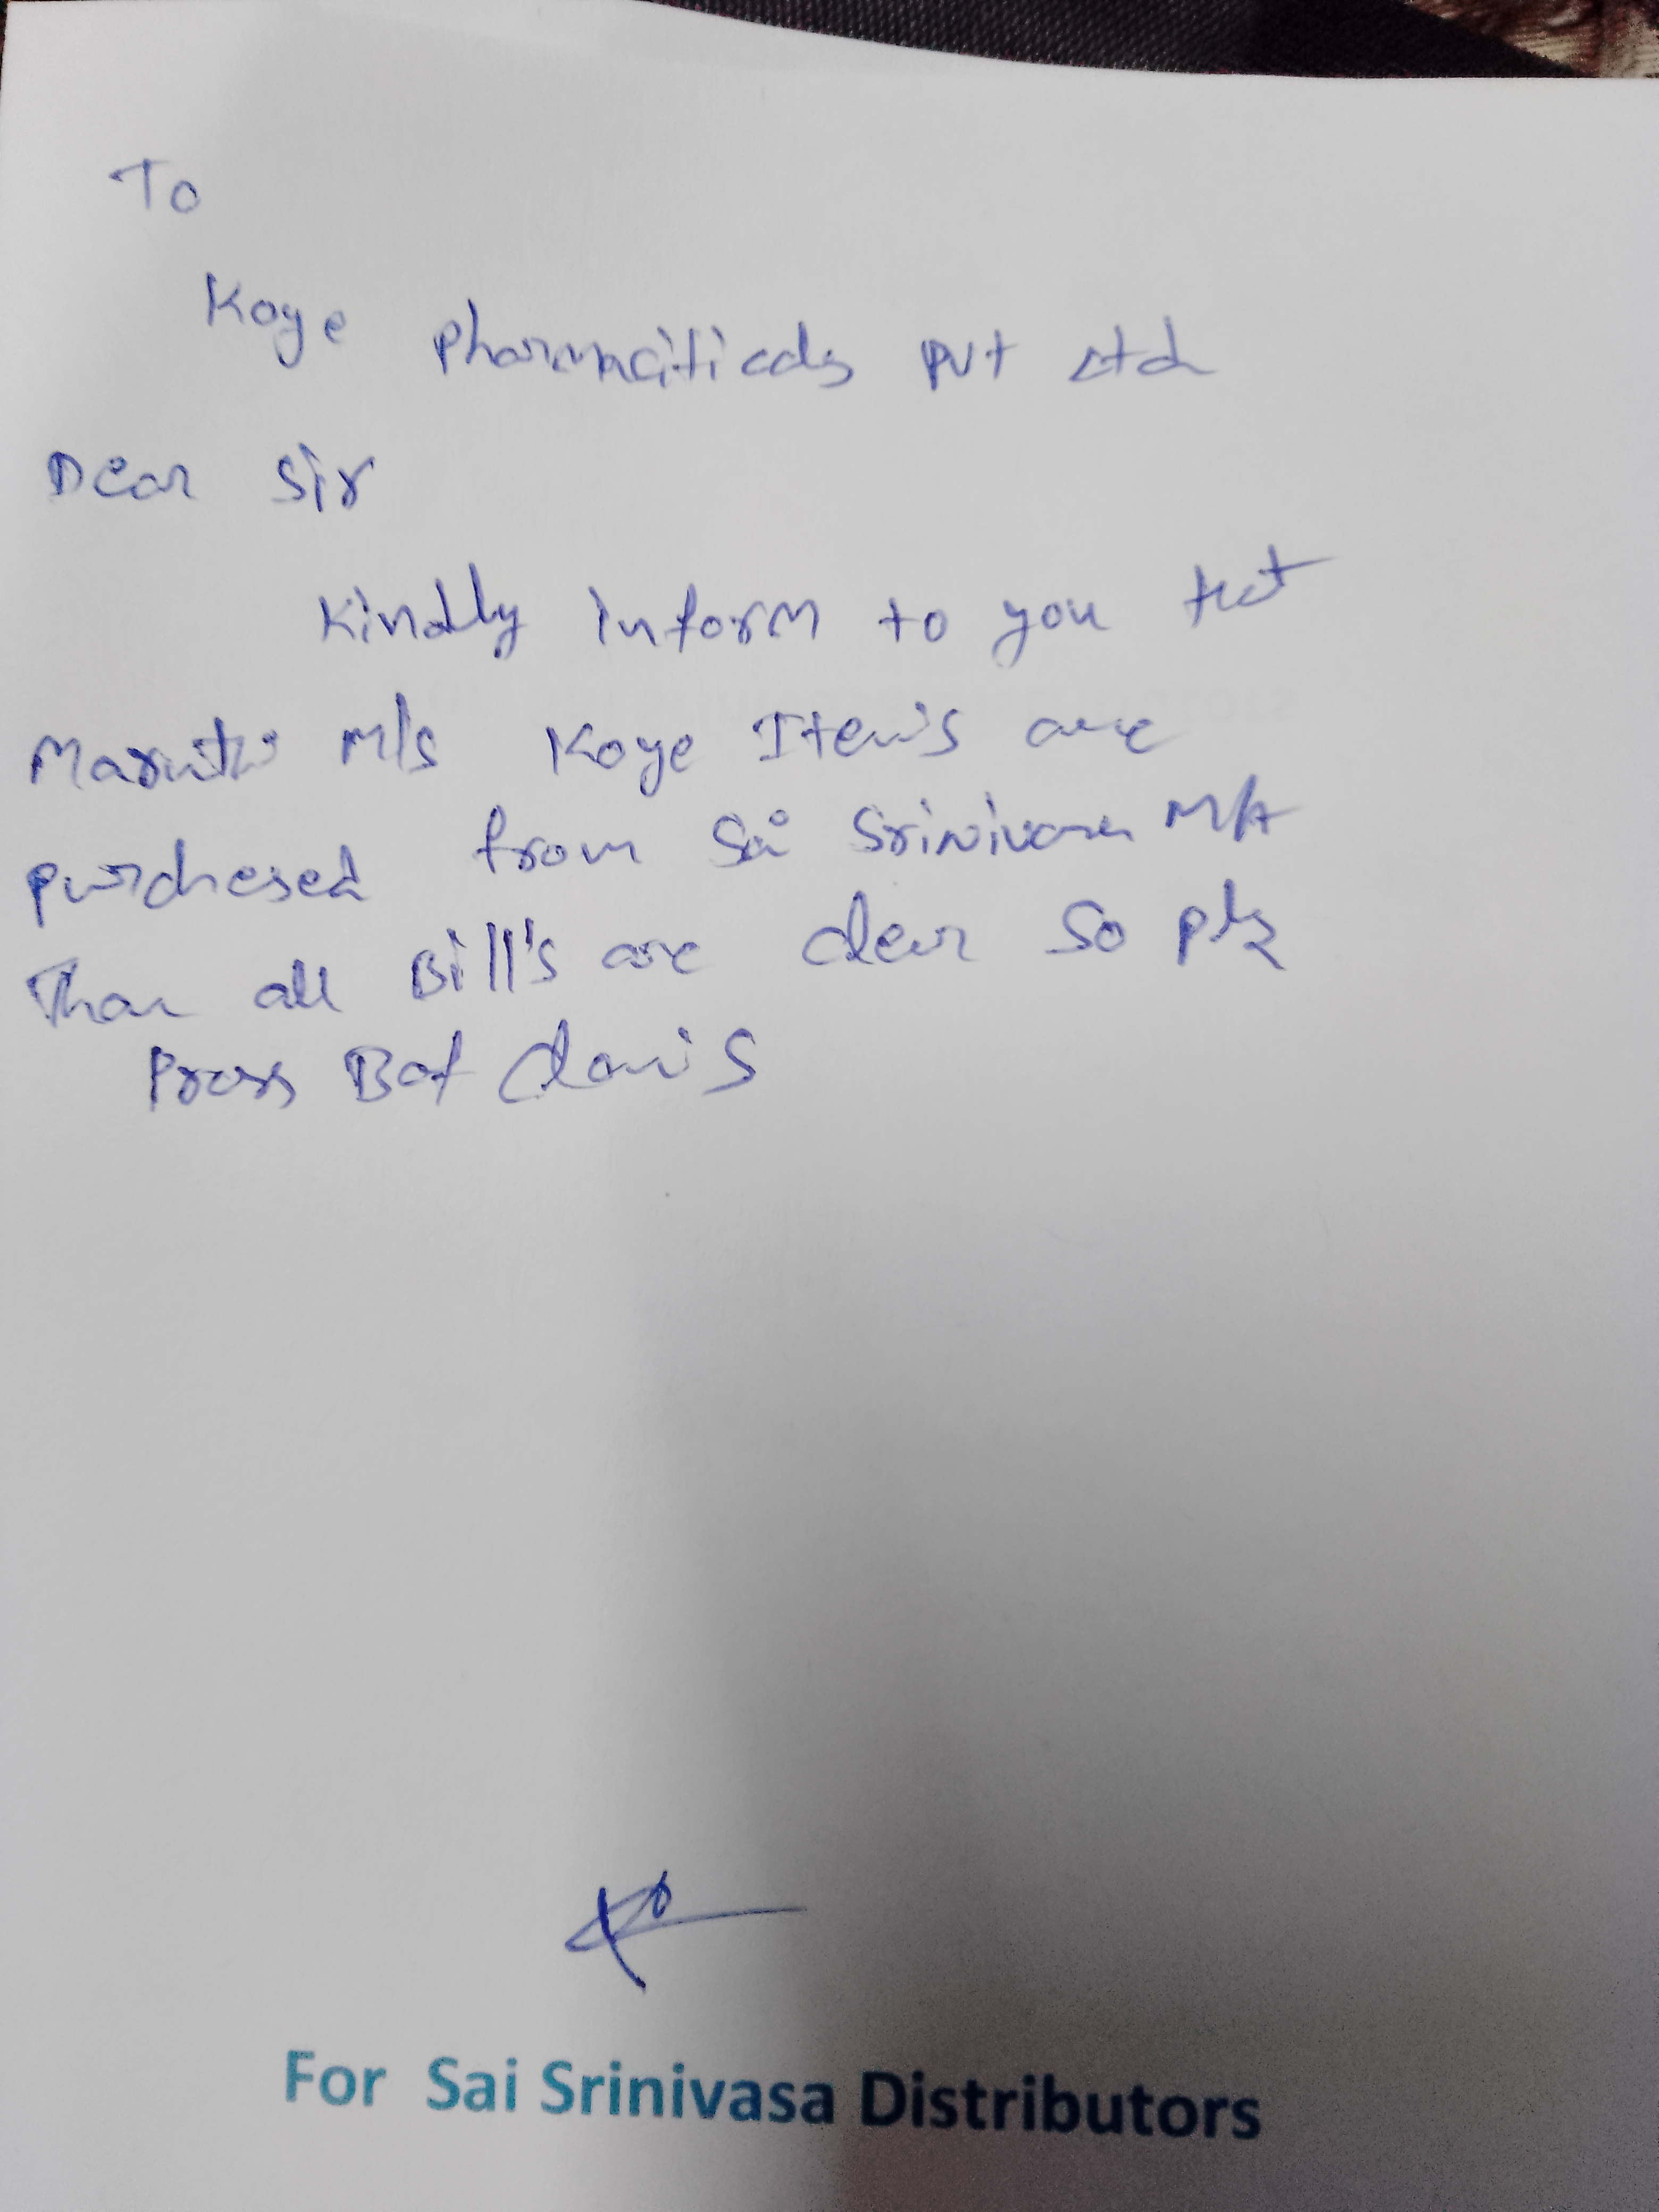 To
Koye Pharmaciticals Pvt Ltd
Dear Sir
Kindly inform to you that
Maruthi M/s Koye Item's are
purchesed from Sai Srinivasa M/A
Than all Bill's are clear So plz
Process Bat claim's
For Sai Srinivasa Distributors